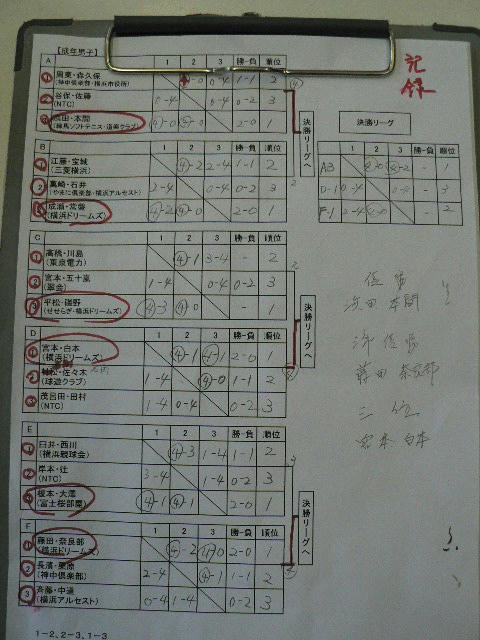 【成年男子】
記録
A 1 2 3 勝ー負 順位
1 周東・森久保 0-4 1-1 2
(神中倶楽部・横浜市役所)
2 谷保・佐藤 0-4 0-4 0-2 3
(NTC)
3 濱田・本間 4-0 4-0 2-0 1
(練馬ソフトテニス・道楽クラブ)
決勝リーグへ
決勝リーグ
1 2 3 勝ー負 順位
B 1 2 3 勝ー負 順位
1 江藤・宝城 4-2 2-4 1-1 2
(三菱横浜)
2 高崎・石井 2-4 0-4 0-2 3
3 成瀬・常磐 4-2 4-0 2-0 1
(横浜ドリームズ)
C 1 2 3 勝ー負 順位
1 高橋・川島 4-1 3-4 - 2
(東京電力)
2 宮本・五十嵐 1-4 0-4 0-2 3
(翠会)
3 平松・磯野 4-3 4-0 - 1
(せせらぎ・横浜ドリームズ)
決勝リーグへ
D 1 2 3 勝ー負 順位
1 宮本・白本 4-1 4-1 2-0 1
(横浜ドリームズ)
2 ・佐々木 1-4 4-0 1-1 2
(球遊クラブ)
3 茂呂田・田村 1-4 0-4 0-2 3
(NTC)
E 1 2 3 勝ー負 順位
1 臼井・西川 4-3 1-4 1-1 2
(横浜競球会)
2 岸本・辻 3-4 1-4 0-2 3
(NTC)
3 榎本・大澤 4-1 4-1 2-0 1
(富士桜部屋)
決勝リーグへ
F 1 2 3 勝ー負 順位
1 藤田・奈良部 4-2 4-0 2-0 1
(横浜ドリームズ)
2 長濱・栗原 2-4 4-1 1-1 2
(神中倶楽部)
3 斉藤・中道 0-4 1-4 0-2 3
(横浜アルセスト)
濱田 本間
藤田 奈良部
三位
宮本 白本
1-2、2-3、1-3